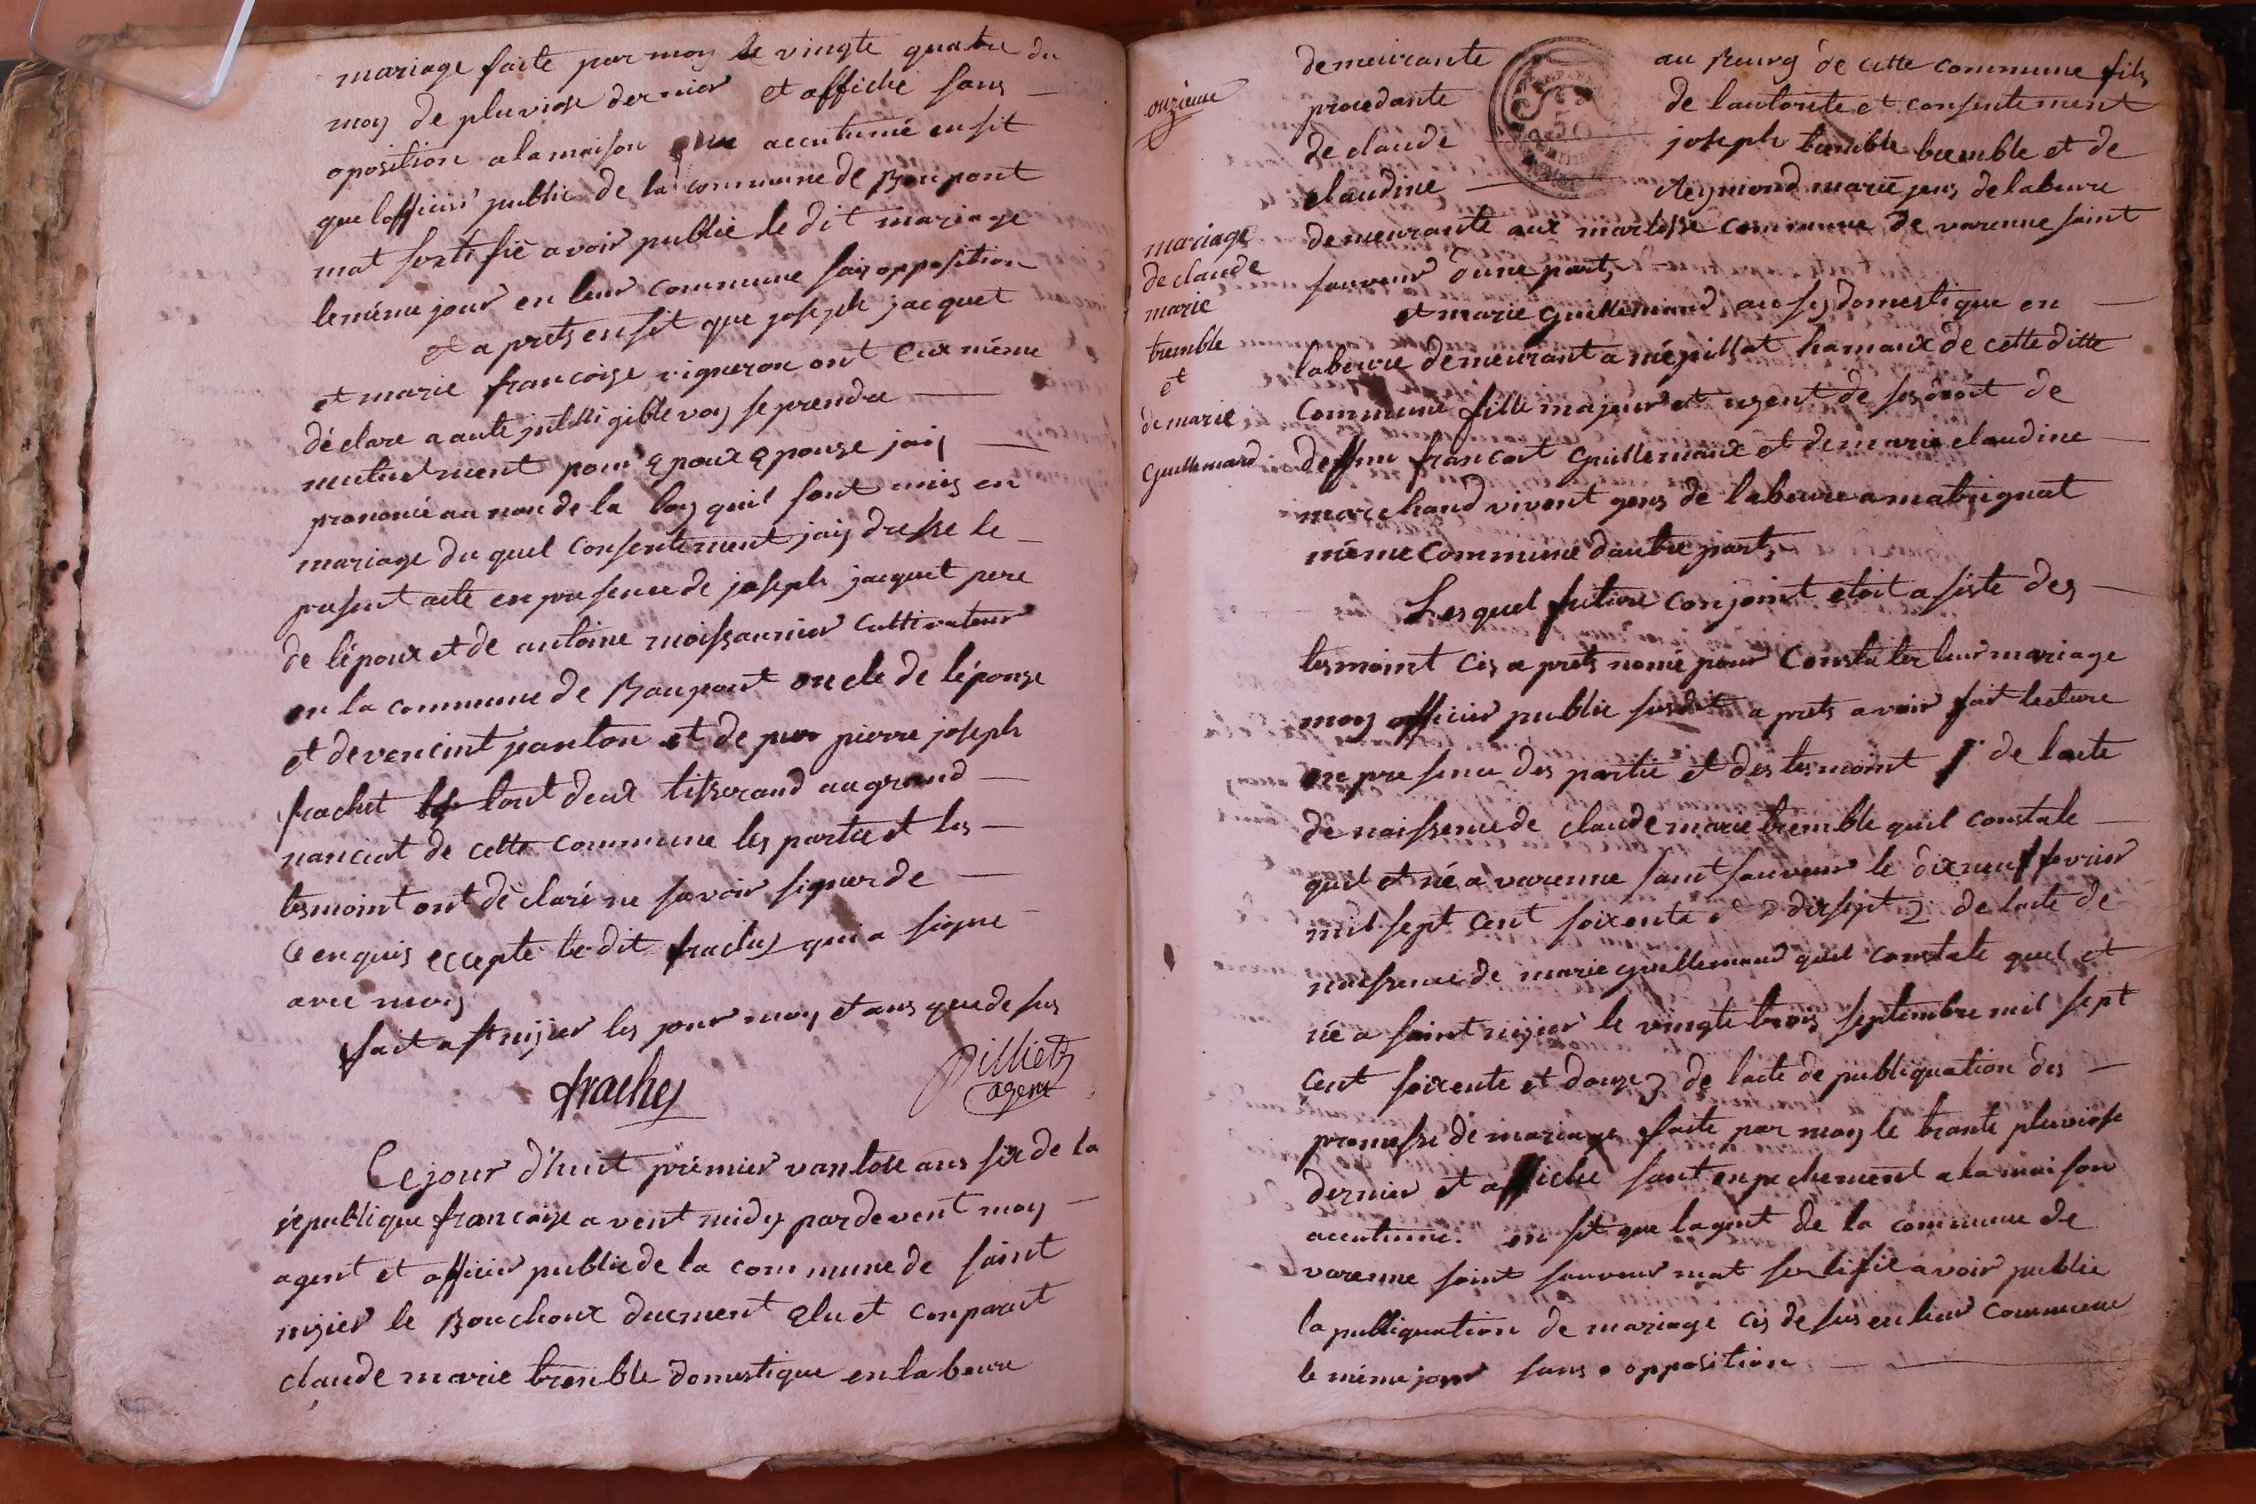 mariage faite par moy le vingte quatre du
moy de pluviose dernier et affiche sans
oposition a la maison accutumé ensit
que lofficier public de la commune de Boupont
mat sertifie avoir publié le dit mariage
le même jour en leur commune sans opposition
et a prets ensit que joseph jacquet
et marie francoise vigneron ont eux même
déclare a aute jntelligible voy se prendre
mutuelment pour epoux epouse jais
prononcé au nom de la loy quil sont unis en
mariage du quel consentement jais dresse le
present acte en presence de joseph jacquet pere
de lépoux et de antoine moissonnier cultivateur
en la commune de Boupont oncle de lépouse
et de vencint jeanton et de pier pierre joseph
frachet tout deux tisserand au grand
nanciat de cette commune les partie et les
tesmoint ont déclaré ne savoir signer de
ce enquis eccepte le dit frachet qui a signe
avec moy
fait a st nizier les jour moy et ans que de sus
frachet
Pilliet
agent
Ce jour d'huit premier vantose ans six de la
république francaize avent midy pardevent moy
agent et officier public de la commune de saint
nizier le Bouchoux duement elu et conparut
claude marie tremble domestique en labeure
onzieme
mariage
de claude
marie
tremble
et
de marie
Guillemard
demeurante au Bourg de cette commune fils
procedante de lautorite et consentement
de claude joseph tremble tremble et de
claudine Reymond marie jens de labeure
demeurante aux marlesse commune de varenne saint
sauveur dune part,
et marie Guillemaud ausy domestique en
labeure demeurant a mépillat hamaux de cette ditte
commune fille majeur et uzent de ses droit de
deffun francoit Guillemaud et de marie claudine
marchand vivent gens de labeure a matrignat
même commune dautre part,
Les quel future conjoint etoit asiste des
tesmoint cis a prets nomé pour constater leur mariage
moy officier public susdit a prets avoir fait lecture
en presence des partie et des tesmoint 1° de lacte
de naissence de claude marie tremble quil constate
quil et né a varenne saint sauveur le dixneuf fevrier
mil sept cent soixente et dixsept 2 de lacte de
naissence de marie guillemaud quil constate quel et
née a saint nizier le vingte trois septembre mil sept
cent soixente et douze 3 de lacte de publiquation des
promesse de mariage faite par moy le trante pluviose
dernier et affiche sant enpechement a la maison
accutumé. en sit que lagent de la commune de
varenne saint sauveur mat sertifié avoir publié
la publiquation de mariage cis de sus en leur commune
le même jour sans opposition